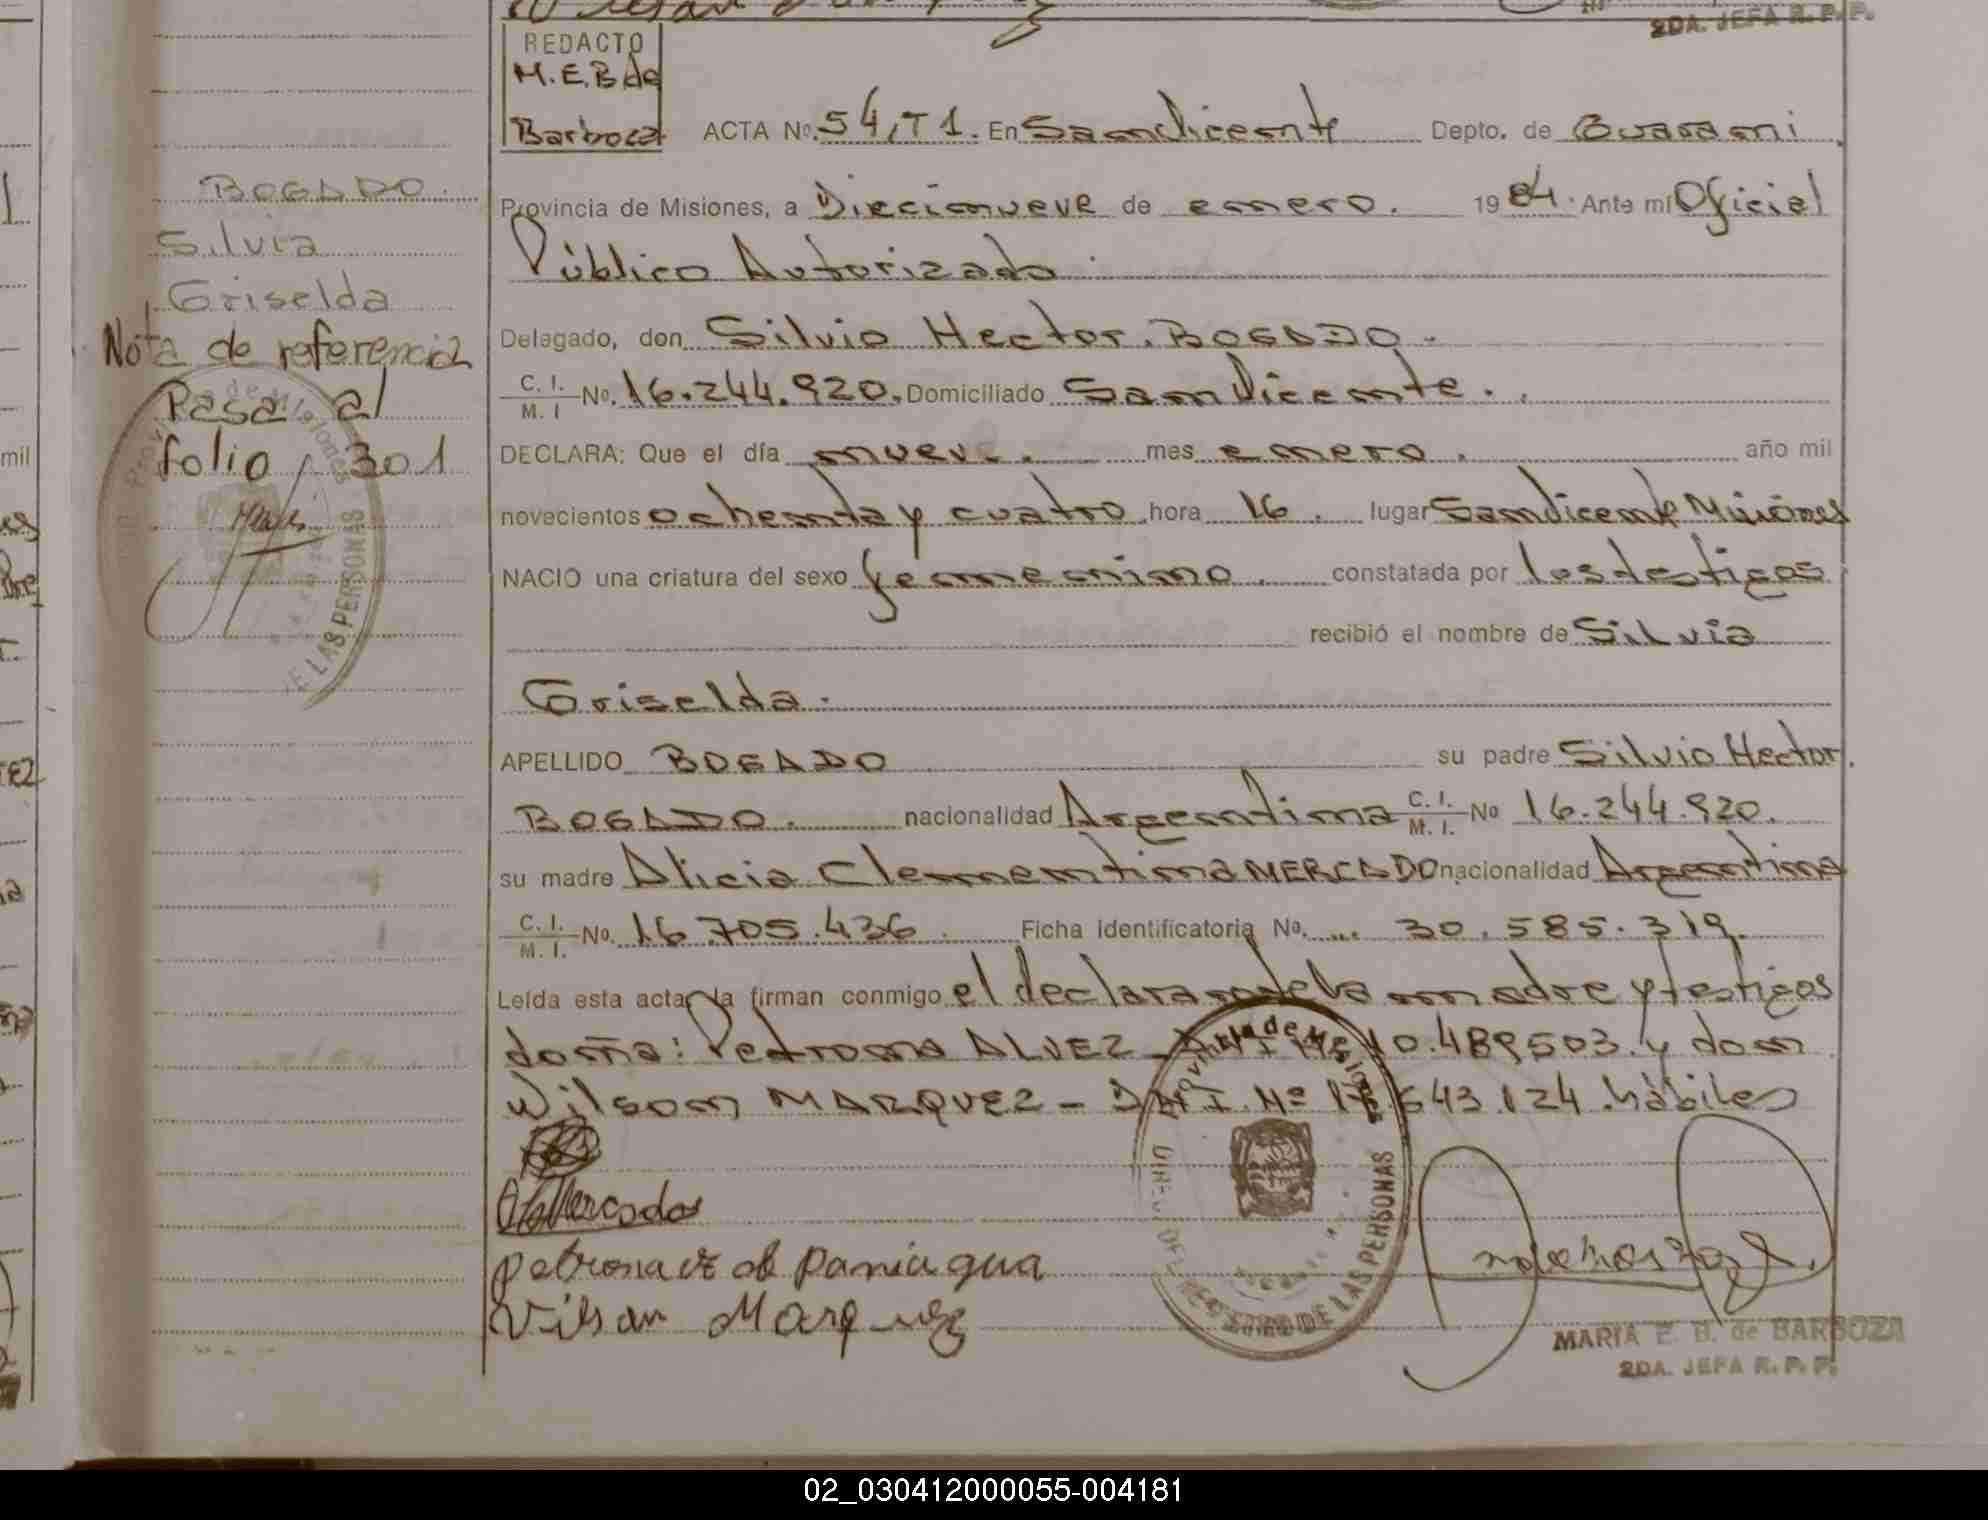 2DA. JEFA R. P. P.
REDACTO
M.E.B de
Barboza
ACTA No. 54, T 1. En San Vicente Depto. de Guarani
BOGADO
Silvia
Griselda
Nota de referencia
Pasa al
folio 301
Provincia de Misiones, a Diecinueve de enero. 1984. Ante mí Oficial
Público Autorizado
Delegado, don Silvio Hector. BOGADO.
C. I.
M. I No. 16.244.920. Domiciliado San Vicente.
DECLARA: Que el día nueve. mes enero. año mil
novecientos ochenta y cuatro hora 16. lugar San Vicente Misiones
NACIO una criatura del sexo femenino. constatada por los testigos
recibió el nombre de Silvia
Griselda.
APELLIDO BOGADO su padre Silvio Hector.
BOGADO. nacionalidad Argentina C. I.
M. I. No 16.244.920.
su madre Alicia Clementina MERCADO nacionalidad Argentina
C. I.
M. I. No. 16.705.436 Ficha identificatoria No. 30.585.319.
Leída esta acta, la firman conmigo el declarante la madre y testigos
doña: Petrona ALVEZ - 10.489503. y don
Wilson MARQUEZ - D.N.I. Nº 643.124 hábiles
Mercado
Petrona de Paniagua
Vilson Marquez
Provincia de Misiones
DE LAS PERSONAS
MARIA E. B. de BARBOZA
2DA. JEFA R. P. P.
02_030412000055-004181